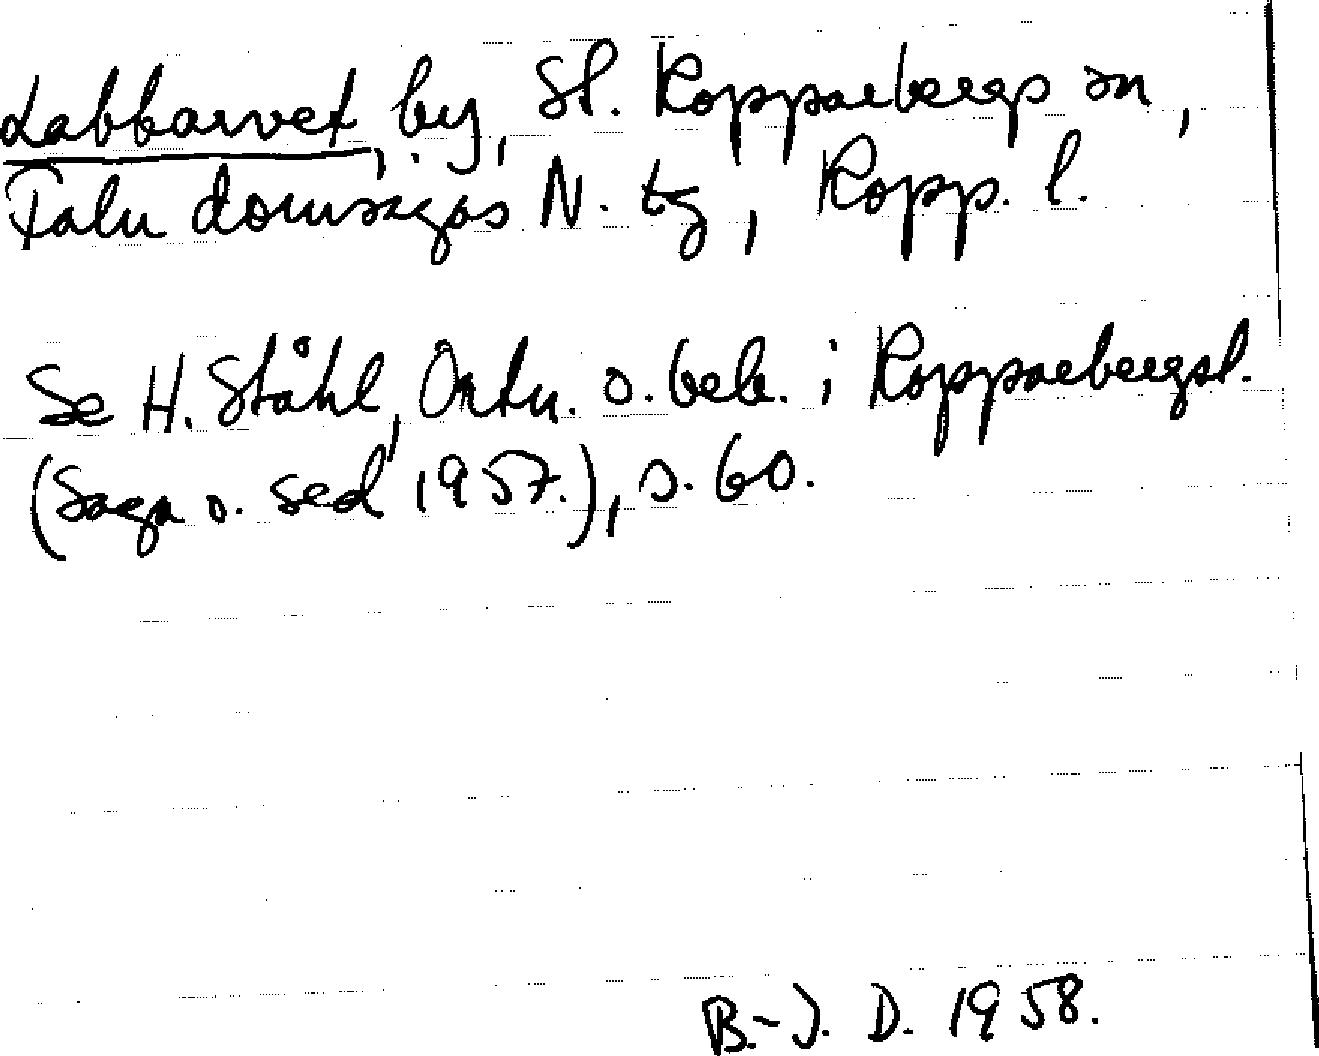 Labbarvet, by, St. Kopparbergs sn,
Falu domsagas N. tg, Kopp. l.
Se H. Ståhl, Ortn. o. beb. i Kopparbergsl.
(Saga o. sed 1957.), s. 60.
B.-J. D. 1958.